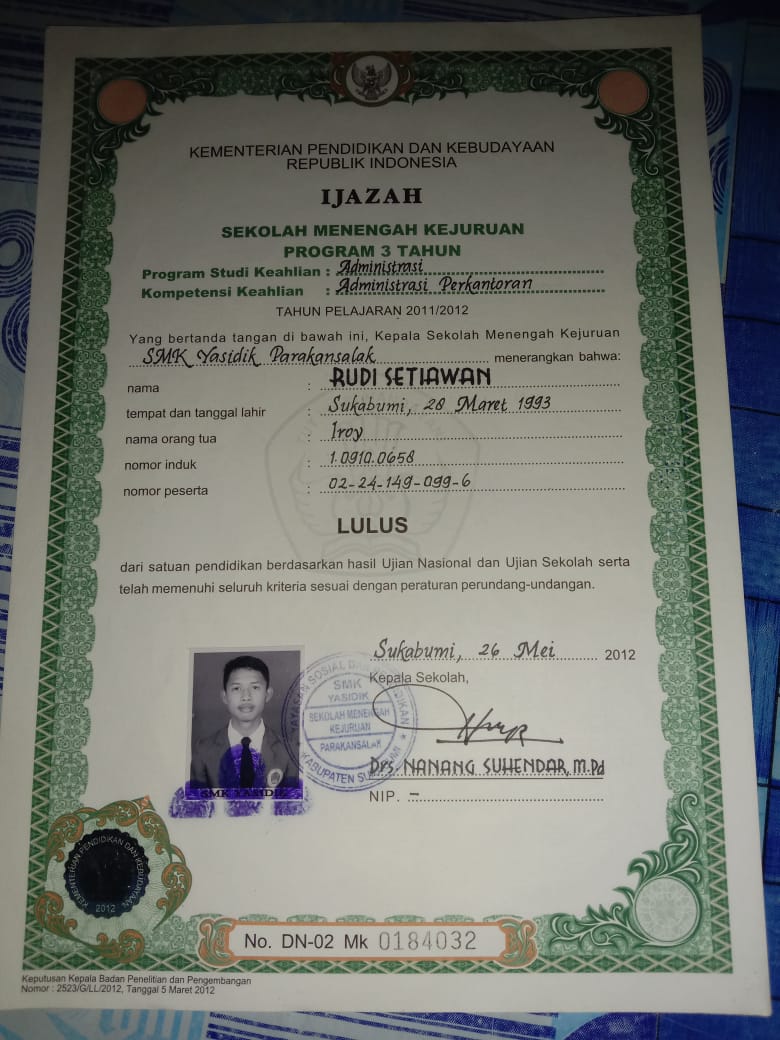 KEMENTERIAN PENDIDIKAN DAN KEBUDAYAAN
REPUBLIK INDONESIA
IJAZAH
SEKOLAH MENENGAH KEJURUAN
PROGRAM 3 TAHUN
Program Studi Keahlian : Administrasi
Kompetensi Keahlian : Administrasi Perkantoran
TAHUN PELAJARAN 2011/2012
Yang bertanda tangan di bawah ini, Kepala Sekolah Menengah Kejuruan
SMK Yasidik Parakansalak menerangkan bahwa:
nama : RUDI SETIAWAN
tempat dan tanggal lahir : Sukabumi, 28 Maret 1993
nama orang tua : Iroy
nomor induk : 1.0910.0658
nomor peserta : 02-24-149-099-6
LULUS
dari satuan pendidikan berdasarkan hasil Ujian Nasional dan Ujian Sekolah serta
telah memenuhi seluruh kriteria sesuai dengan peraturan perundang-undangan.
Sukabumi, 26 Mei 2012
Kepala Sekolah,
YAYASAN SOSIAL DAN PENDIDIKAN
SMK
YASIDIK
SEKOLAH MENENGAH
KEJURUAN
PARAKANSALAK
KABUPATEN
Drs. NANANG SUHENDAR, M.Pd
NIP. -
SMK YASIDIK
KEMENTERIAN PENDIDIKAN DAN KEBUDAYAAN
2012
No. DN-02 Mk 0184032
Keputusan Kepala Badan Penelitian dan Pengembangan
Nomor : 2523/G/LL/2012, Tanggal 5 Maret 2012